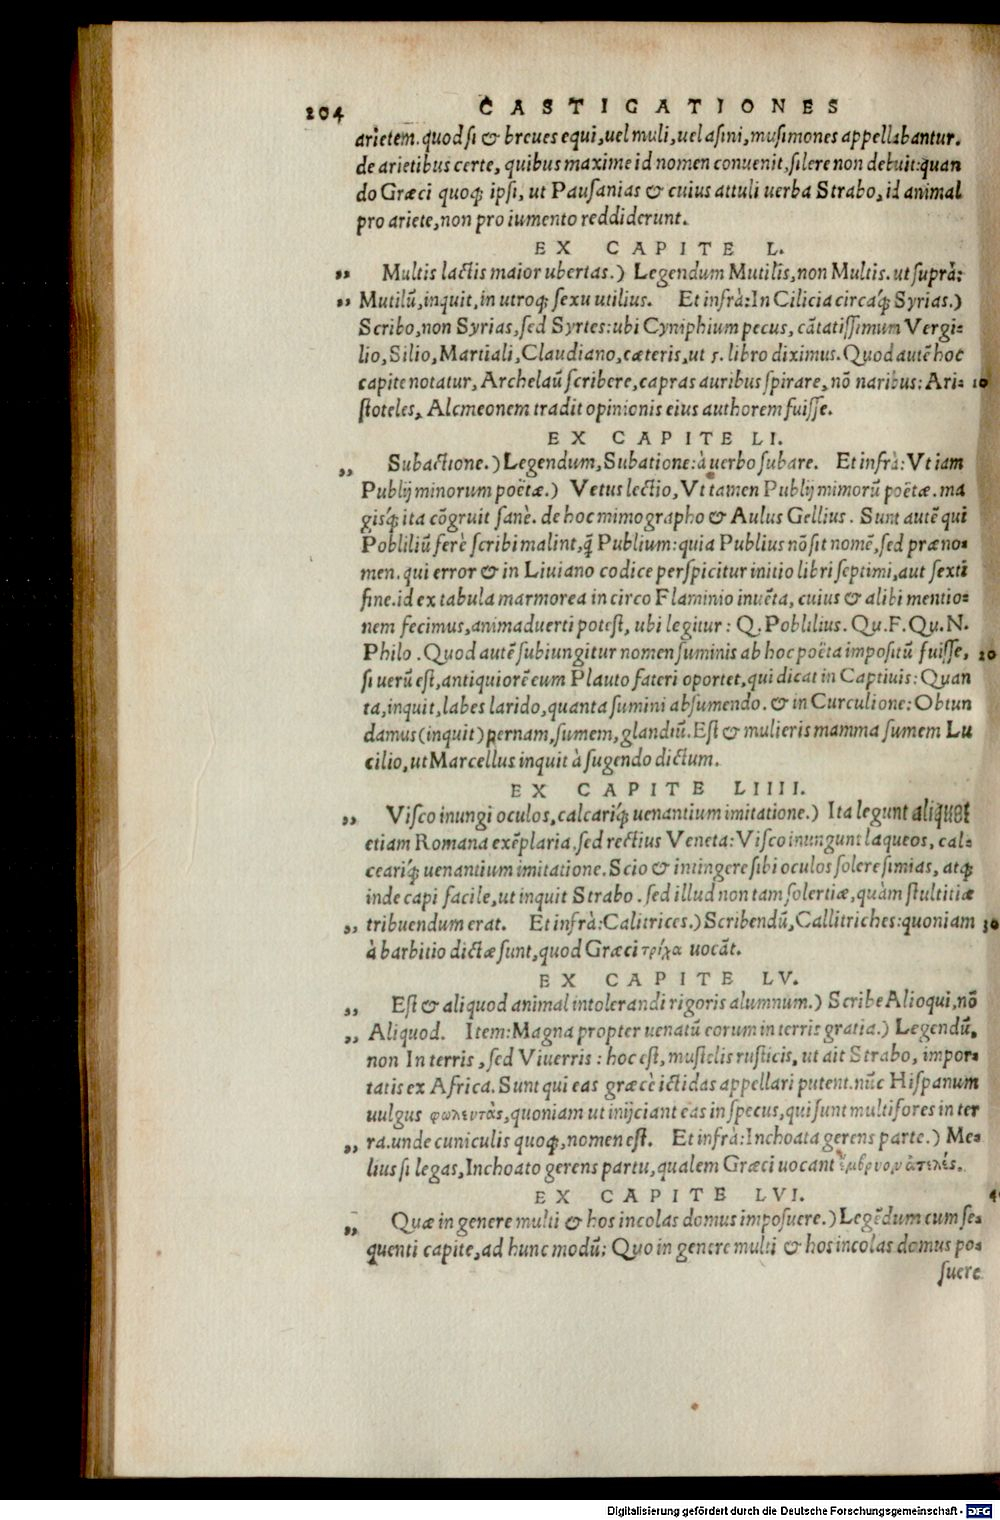 204 CASTIGATIONES
arietem. quod ſi & breues equi, uel muli, uel aſini, muſimones appellabantur.
de arietibus certe, quibus maxime id nomen conuenit, ſilere non debuit: quan
do Græci quoqꝫ ipſi, ut Pauſanias & cuius attuli uerba Strabo, id animal
pro ariete, non pro iumento reddiderunt.
EX CAPITE L.
„ Multis lactis maior ubertas.) Legendum Mutilis, non Multis. ut ſuprà:
„ Mutilū, inquit, in utroqꝫ ſexu utilius. Et infrà: In Cilicia circaq́ꝫ Syrias.)
Scribo, non Syrias, ſed Syrtes: ubi Cyniphium pecus, cātatiſſimum Vergi=
lio, Silio, Martiali, Claudiano, cæteris, ut 5. libro diximus. Quod autē hoc
capite notatur, Archelaū ſcribere, capras auribus ſpirare, nō naribus: Ari= 10
ſtoteles, Alcmeonem tradit opinionis eius authorem fuiſſe.
EX CAPITE LI.
„ Subactione.) Legendum, Subatione: à uerbo ſubare. Et infrà: Vt iam
Publij minorum poëtæ.) Vetus lectio, Vt tamen Publij mimorū poëtæ. ma
gisq́ꝫ ita cōgruit ſanè. de hoc mimographo & Aulus Gellius. Sunt autē qui
Pobliliū ferè ſcribi malint, q̄ Publium: quia Publius nō ſit nomē, ſed præno=
men. qui error & in Liuiano codice perſpicitur initio libri ſeptimi, aut ſexti
fine. id ex tabula marmorea in circo Flaminio inuēta, cuius & alibi mentio=
nem fecimus, animaduerti poteſt, ubi legitur: Q. Poblilius. Qu. F. Qu. N.
Philo. Quod autē ſubiungitur nomen ſuminis ab hoc poëta impoſitū fuiſſe, 20
ſi uerū eſt, antiquiorē eum Plauto fateri oportet, qui dicat in Captiuis: Quan
ta, inquit, labes larido, quanta ſumini abſumendo. & in Curculione: Obtun
damus (inquit) pernam, ſumem, glandiū. Eſt & mulieris mamma ſumem Lu
cilio, ut Marcellus inquit à ſugendo dictum.
EX CAPITE LIIII.
„ Viſco inungi oculos, calcariq́ꝫ uenantium imitatione.) Ita legunt aliquot
etiam Romana exēplaria. ſed rectius Veneta: Viſco inungunt laqueos, cal=
cearíq́ꝫ uenantium imitatione. Scio & intingere ſibi oculos ſolere ſimias, atqꝫ
inde capi facile, ut inquit Strabo. ſed illud non tam ſolertiæ, quàm ſtultitiæ
„ tribuendum erat. Et infrà: Calitrices.) Scribendū, Callitriches: quoniam 30
à barbitio dictæ ſunt, quod Græci τρίχα uocāt.
EX CAPITE LV.
„ Eſt & aliquod animal intolerandi rigoris alumnum.) Scribe Alioqui, nō
„ Aliquod. Item: Magna propter uenatū eorum in terris gratia.) Legendū,
non In terris, ſed Viuerris: hoc eſt, muſtelis ruſticis, ut ait Strabo, impor=
tatis ex Africa. Sunt qui eas græcè ictidas appellari putent. nūc Hiſpanum
uulgus φωλευτὰς, quoniam ut inijciant eas in ſpecus, qui ſunt multifores in ter
„ ra. unde cuniculis quoqꝫ, nomen eſt. Et infrà: Inchoata gerens parte.) Me=
lius ſi legas, Inchoato gerens partu, qualem Græci uocant ἔμβρυον ἀτελές.
EX CAPITE LVI.
„ Quæ in genere multi & hos incolas domus impoſuere.) Legēdum cum ſe=
quenti capite, ad hunc modū: Quo in genere multi & hos incolas domus po=
ſuere
Digitalisierung gefördert durch die Deutsche Forschungsgemeinschaft - DFG